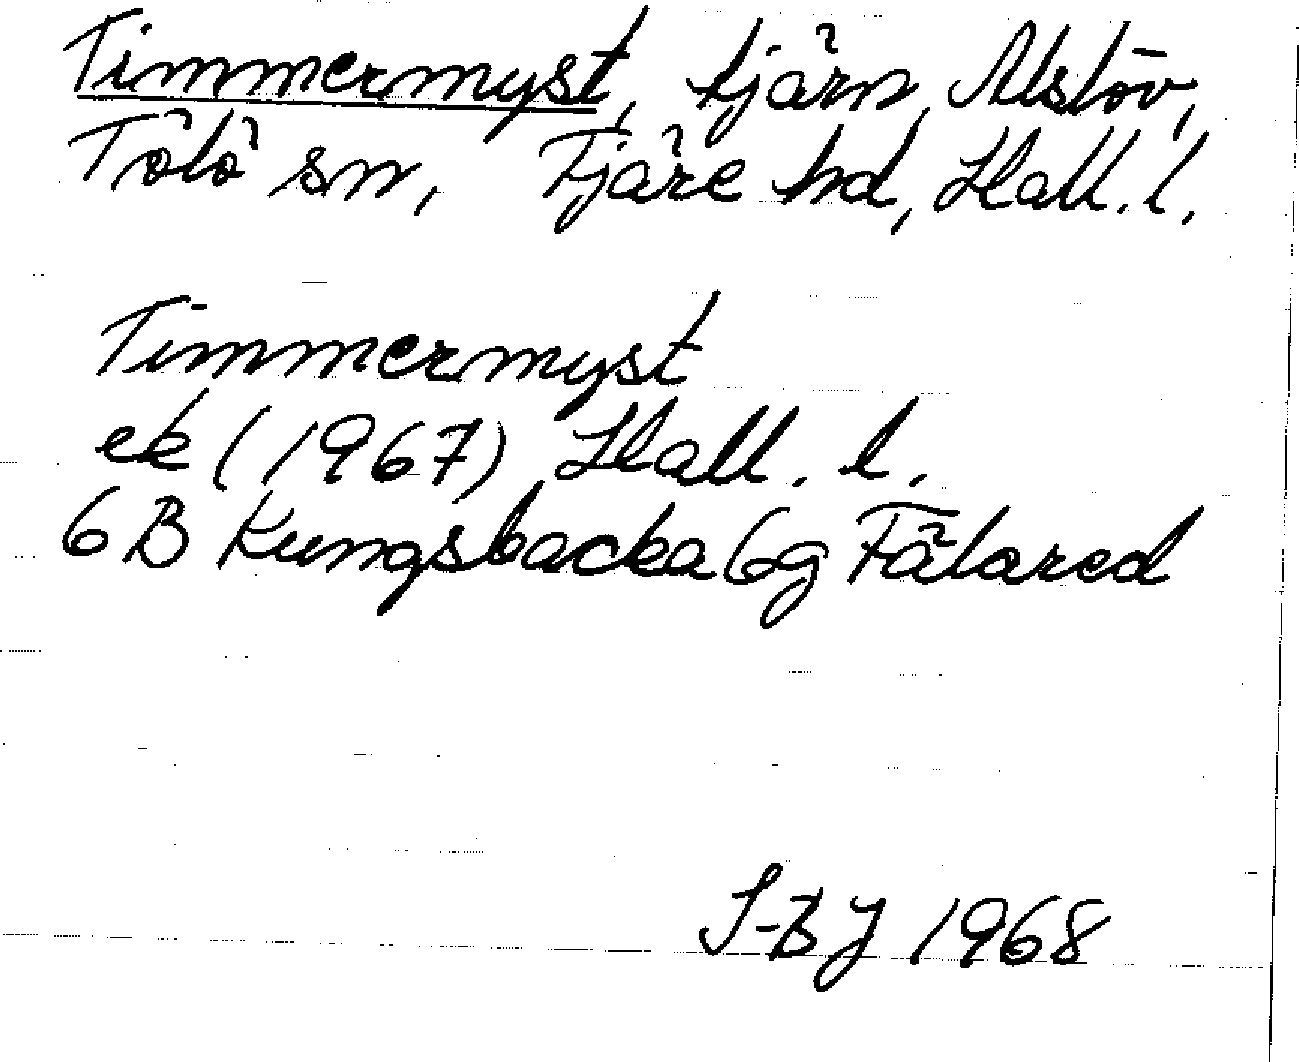 Timmermyst, tjärn, Alslöv,
Tölö sn, Fjäre hd, Hall. l.
Timmermyst
ek (1967) Hall. l.
6B Kungsbacka 6g Fälared
S-BJ 1968